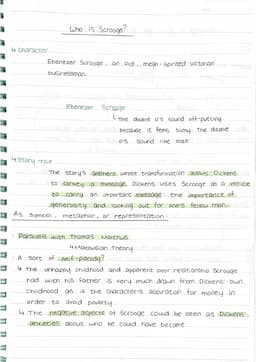 Who is Scrooge?
↳ character
Ebenezer Scrooge, an old, mean-spirited Victorian
businessman.
Ebenezer Scrooge
↳ The double o's sound off-putting
because it feels . The double
o's sound like
↳ Story-role
The story's whose transformation allows Dickens
to convey a message. Dickens uses Scrooge as a vehicle
to carry an important message: the importance of
generosity and looking out for one's fellow man.
As symbol, metaphor, or representation:
Parallels with Thomas Malthus
↳ Malthusian Theory
A sort of self-parody?
↳ The unhappy childhood and apparent poor relationship Scrooge
had with his father is very much drawn from Dickens' own
childhood as is the character's aspiration for money in
order to avoid poverty.
↳ The negative aspects of Scrooge could be seen as Dickens'
anxieties about who he could have become.